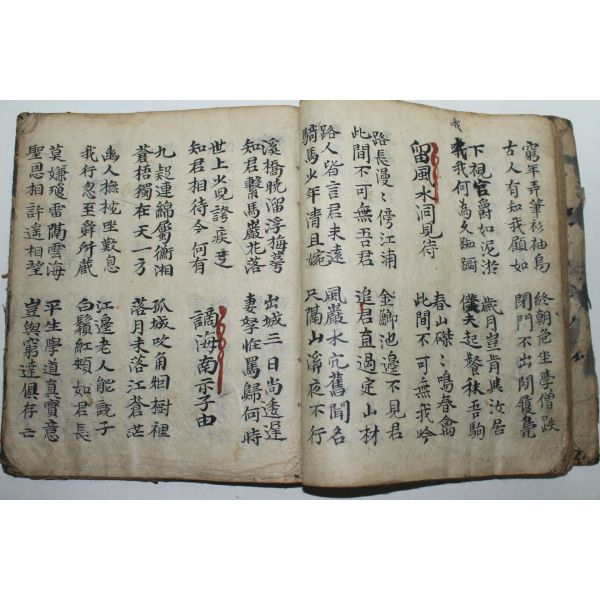 窮年弄筆衫袖烏
古人有知我願如
終朝危坐學僧趺
閉門不出閒履鳧
下視官爵如泥淤
我何為久踟躕
歲月豈肯與汝居
僕夫起餐秣吾駒
留風水洞見待
春山磔〻鳴春禽
此間不可無我吟
路長漫〻傍江浦
此間不可無吾君
金鯽池邊不見君
追君直過定山材
路人皆言君未遠
騎馬少年清且婉
風巖水穴舊聞名
只隔山溪夜不行
溪橋曉溜浮梅萼
知君繫馬巖花落
出城三日尚逶遲
妻孥怪罵歸何時
世上小兒誇疾走
知君相待今何有
謫海南示子由
九疑連綿屬衡湘
蒼梧獨在天一方
孤城吹角烟樹裡
落月未落江蒼茫
幽人撫枕坐歎息
我行忽至舜所藏
江邊老人能說子
白鬚紅頰如君長
莫嫌瓊雷隔雲海
聖恩相許遙相望
平生學道真實意
豈與窮達俱存亡